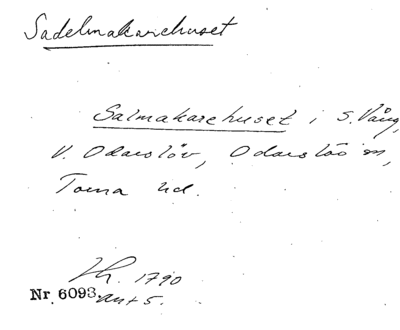 Sadelmakarehuset
Salmakarehuset i S. Vång,
V. Odarslöv, Odarslöv sn,
Torna hd.
1790
Nr 6093. ant 5.